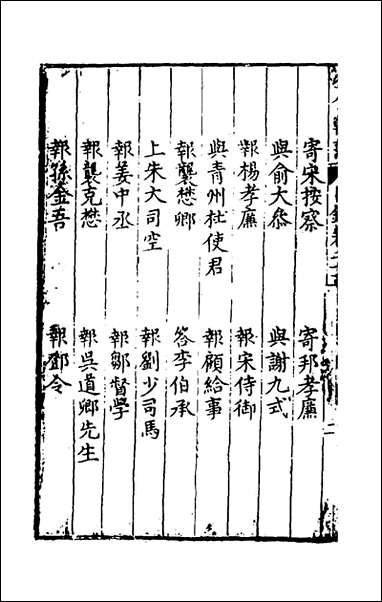 寄宋按察
寄邦孝廉
與俞大參
與謝九式
報楊孝廉
報宋侍御
與青州杜使君
報顧給事
報龔懋卿
答李伯承
上朱大司空
報劉少司馬
報姜中丞
報鄒督學
報龔克懋
報吳道卿先生
報孫金吾
報鄧令